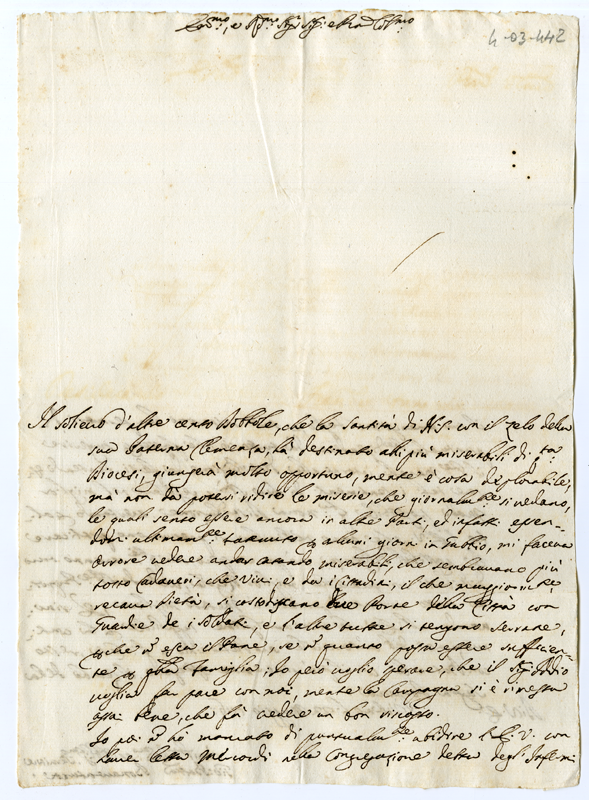 4-03-442
Em.mo, e R.mo Sig.r Sig.e Pad. Col.mo
Il solievo d'altre cento Dobbole, che la Santità di N.S. con il Zelo della
sua Paterna Clemenza, hà destinato alli più miserabili di q.ta
Diocesi, giungerà molto opportuno, mentre è cosa deplorabile,
mà non da potersi ridire le miserie, che giornalm.te si vedano,
le quali sento essere ancora in altre Parti, ed infatti essen-
domi ultimam.te trattenuto p alcuni giorni in Gubbio, mi faceva
orrore vedere andar cercando miserabili, che sembravano più
tosto Cadaveri, che Vivi, e da i Cittadini, il che maggiorm.te
recava pietà, si custodiscano due Porte della Città con
Guardie de i Soldati, e l'altre tutte si tengono serrate,
p che n esca il Pane, se n quanto possa essere sufficien-
te p q.lla famiglia. Io però voglio sperare, che il Sig. Iddio
voglia far pace con noi, mentre la Campagna si è rimessa
assai bene, che fà vedere un bon riscosso.
Io poi n hò mancato di puntualm.te ubidire l'E.V. con
haver letta Mercordì nella Congregazione detta degli Infermi